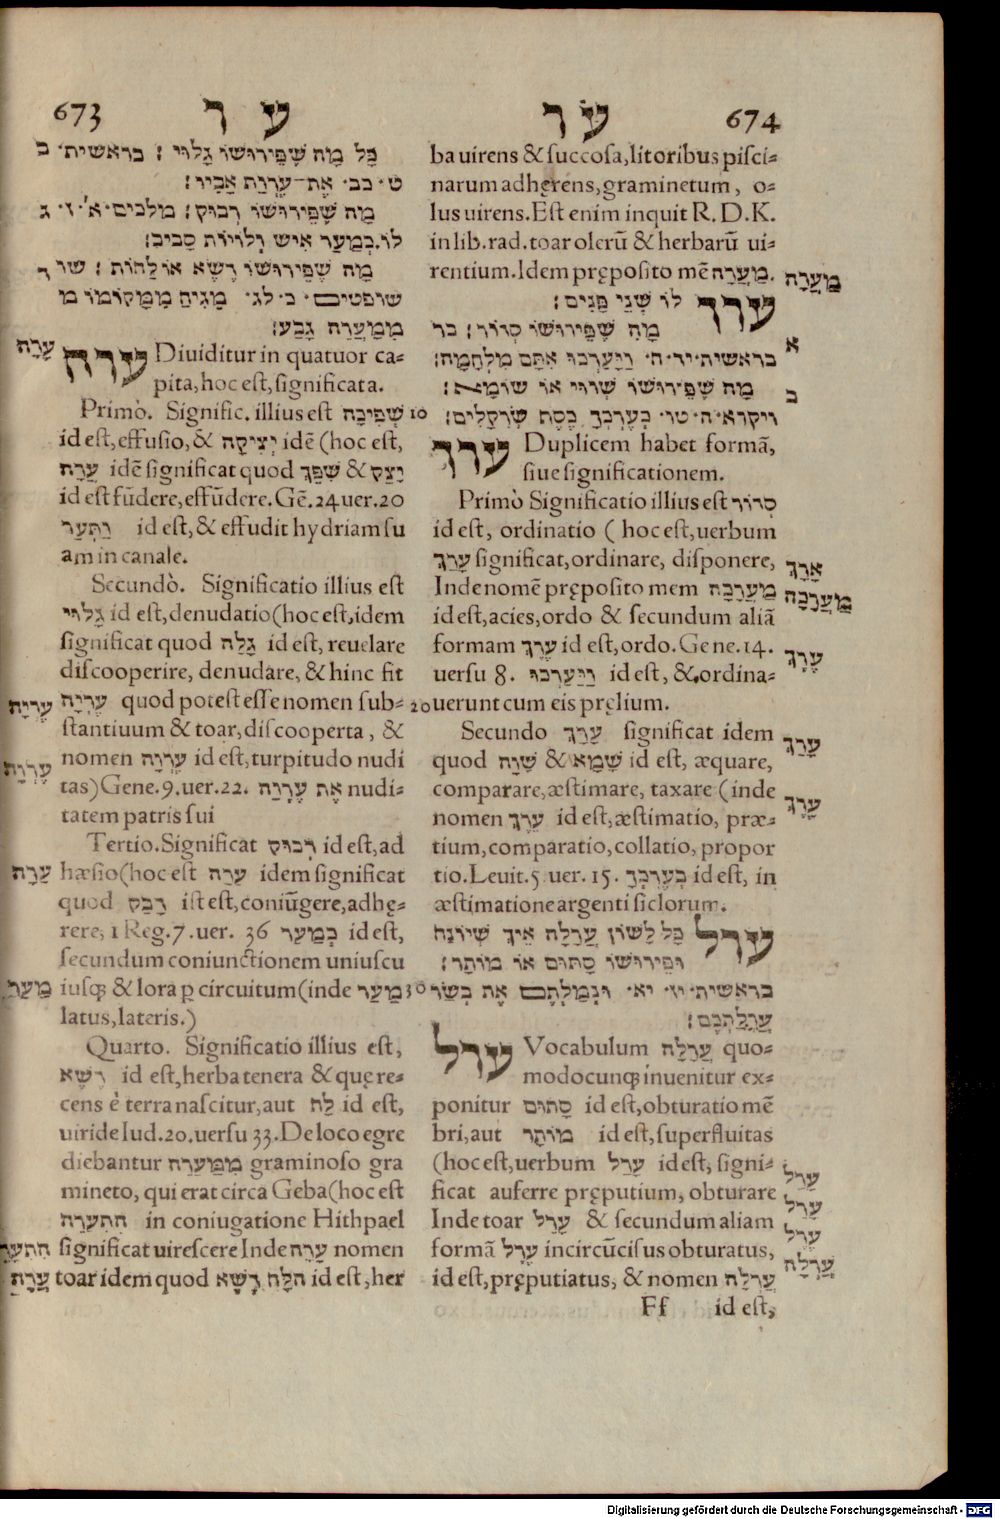 673 ער
כָל מָה שֶׁפֵּירוּשׁוֹ גָלוּי׃ בראשית· ב
ט· כב· אֶת־עֶרְוַת אָבִיו׃
מָה שֶׁפֵּירוּשׁוֹ דְבוּק׃ מלכים· א׳· ז· ג
לו· כְמַעַר אִישׁ וְלוֹיוֹת סָבִיב׃
מָה שֶׁפֵּירוּשׁוֹ דֶשֶׁא אוֹ לַחוּת׃ שׁוֹ ד
שׁוֹפטים· כ· לג· מֵגִיחַ מִמְקוֹמוֹ מ
מִמַעֲרֵה גָבַע׃
עָרָה
ערה Diuiditur in quatuor ca-
pita, hoc est, significata.
Primò. Signific. illius est שְׁפִיכָה 10
id est, effusio, & יְצִיקָה idē (hoc est,
עָרָה idē significat quod שָׁפַךְ & יָצַק
id est fūdere, effūdere. Gē. 24 uer. 20
וַתְּעַר id est, & effudit hydriam su
am in canale.
Secundò. Significatio illius est
גָלוּי id est, denudatio (hoc est, idem
significat quod גָלָה id est, reuelare
discooperire, denudare, & hinc fit
עֶרְיָה quod potest esse nomen sub- 20
עֶרְיָה
stantiuum & toar, discooperta, &
nomen עֶרְוָה id est, turpitudo nudi
עֶרְוָה
tas) Gene. 9. uer. 22. אֶת עֶרְוַת nudi-
tatem patris sui
Tertio. Significat דְבוּק id est, ad
hæsio (hoc est עָרָה idem significat
עָרָה
quod דָבַק ist est, coniūgere, adhę-
rere, 1 Reg. 7. uer. 36 כְמַעַר id est,
secundum coniunctionem uniuscu
iusq; & lora p circuitum (inde מַעַר 30
מַעַר
latus, lateris.)
Quarto. Significatio illius est,
דֶשֶׁא id est, herba tenera & quę re-
cens è terra nascitur, aut לַח id est,
uiride Iud. 20. uersu 33. De loco egre
diebantur מִמַעֲרֵה graminoso gra
mineto, qui erat circa Geba (hoc est
הִתְעָרָה in coniugatione Hithpael
significat uirescere Inde עָרָה nomen
הִתְעָרָה
toar idem quod דֶשֶׁא הלח id est, her
עָרָה
ער 674
ba uirens & succosa, litoribus pisci-
narum adhęrens, graminetum, o-
lus uirens. Est enim inquit R. D. K.
in lib. rad. toar olerū & herbarū ui-
rentium. Idem pręposito mē מַעֲרָה.
מַעֲרָה
ערך לוֹ שְׁנֵי פָנִים׃
מָה שֶׁפֵּירוּשׁוֹ סִדוּר׃ בר א
בראשית· יד· ח· וַיַעַרְכוּ אִתָּם מִלְחָמָה׃
מָה שֶׁפֵּירוּשׁוֹ שִׁווּי אוֹ שׁוּמָא׃ ב
ויקרא· ה· טו· בְעֶרְכְךָ כֶסֶף שְׁקָלִים׃
ערך Duplicem habet formā,
siue significationem.
Primò Significatio illius est סִדוּר
id est, ordinatio (hoc est, uerbum
עָרַךְ significat, ordinare, disponere,
עָרַךְ
Inde nomē pręposito mem מַעֲרָכָה
מַעֲרָכָה
id est, acies, ordo & secundum aliā
formam עֶרֶךְ id est, ordo. Gene. 14.
עֶרֶךְ
uersu 8. וַיַעַרְכוּ id est, & ordina-
uerunt cum eis pręlium.
Secundo עָרַךְ significat idem
עָרַךְ
quod שָׁוָה & שָׁמָא id est, æquare,
comparare, æstimare, taxare (inde
nomen עֵרֶךְ id est, æstimatio, præ-
עֵרֶךְ
tium, comparatio, collatio, propor
tio. Leuit. 5 uer. 15. בְעֶרְכְךָ id est, in
æstimatione argenti siclorum.
ערל כָל לְשׁוֹן עָרְלָה אֵיךְ שֶׁיִהְיֶה
וּפֵירוּשׁוֹ סָתוּם אוֹ מוֹתָר׃
בראשית· יז· יא· וּנְמַלְתֶּם אֶת בְשַׂר
עָרְלַתְכֶם׃
ערל Vocabulum עָרְלָה quo-
modocunq; inuenitur ex-
ponitur סָתוּם id est, obturatio mē
bri, aut מוֹתָר id est, superfluitas
(hoc est, uerbum עָרַל id est, signi-
עָרַל
ficat auferre pręputium, obturare
Inde toar עָרֵל & secundum aliam
עָרֵל
formā עֶרֶל incircūcisus obturatus,
עֶרֶל
id est, pręputiatus, & nomen עָרְלָה
עָרְלָה
Ff id est,
Digitalisierung gefördert durch die Deutsche Forschungsgemeinschaft · DFG